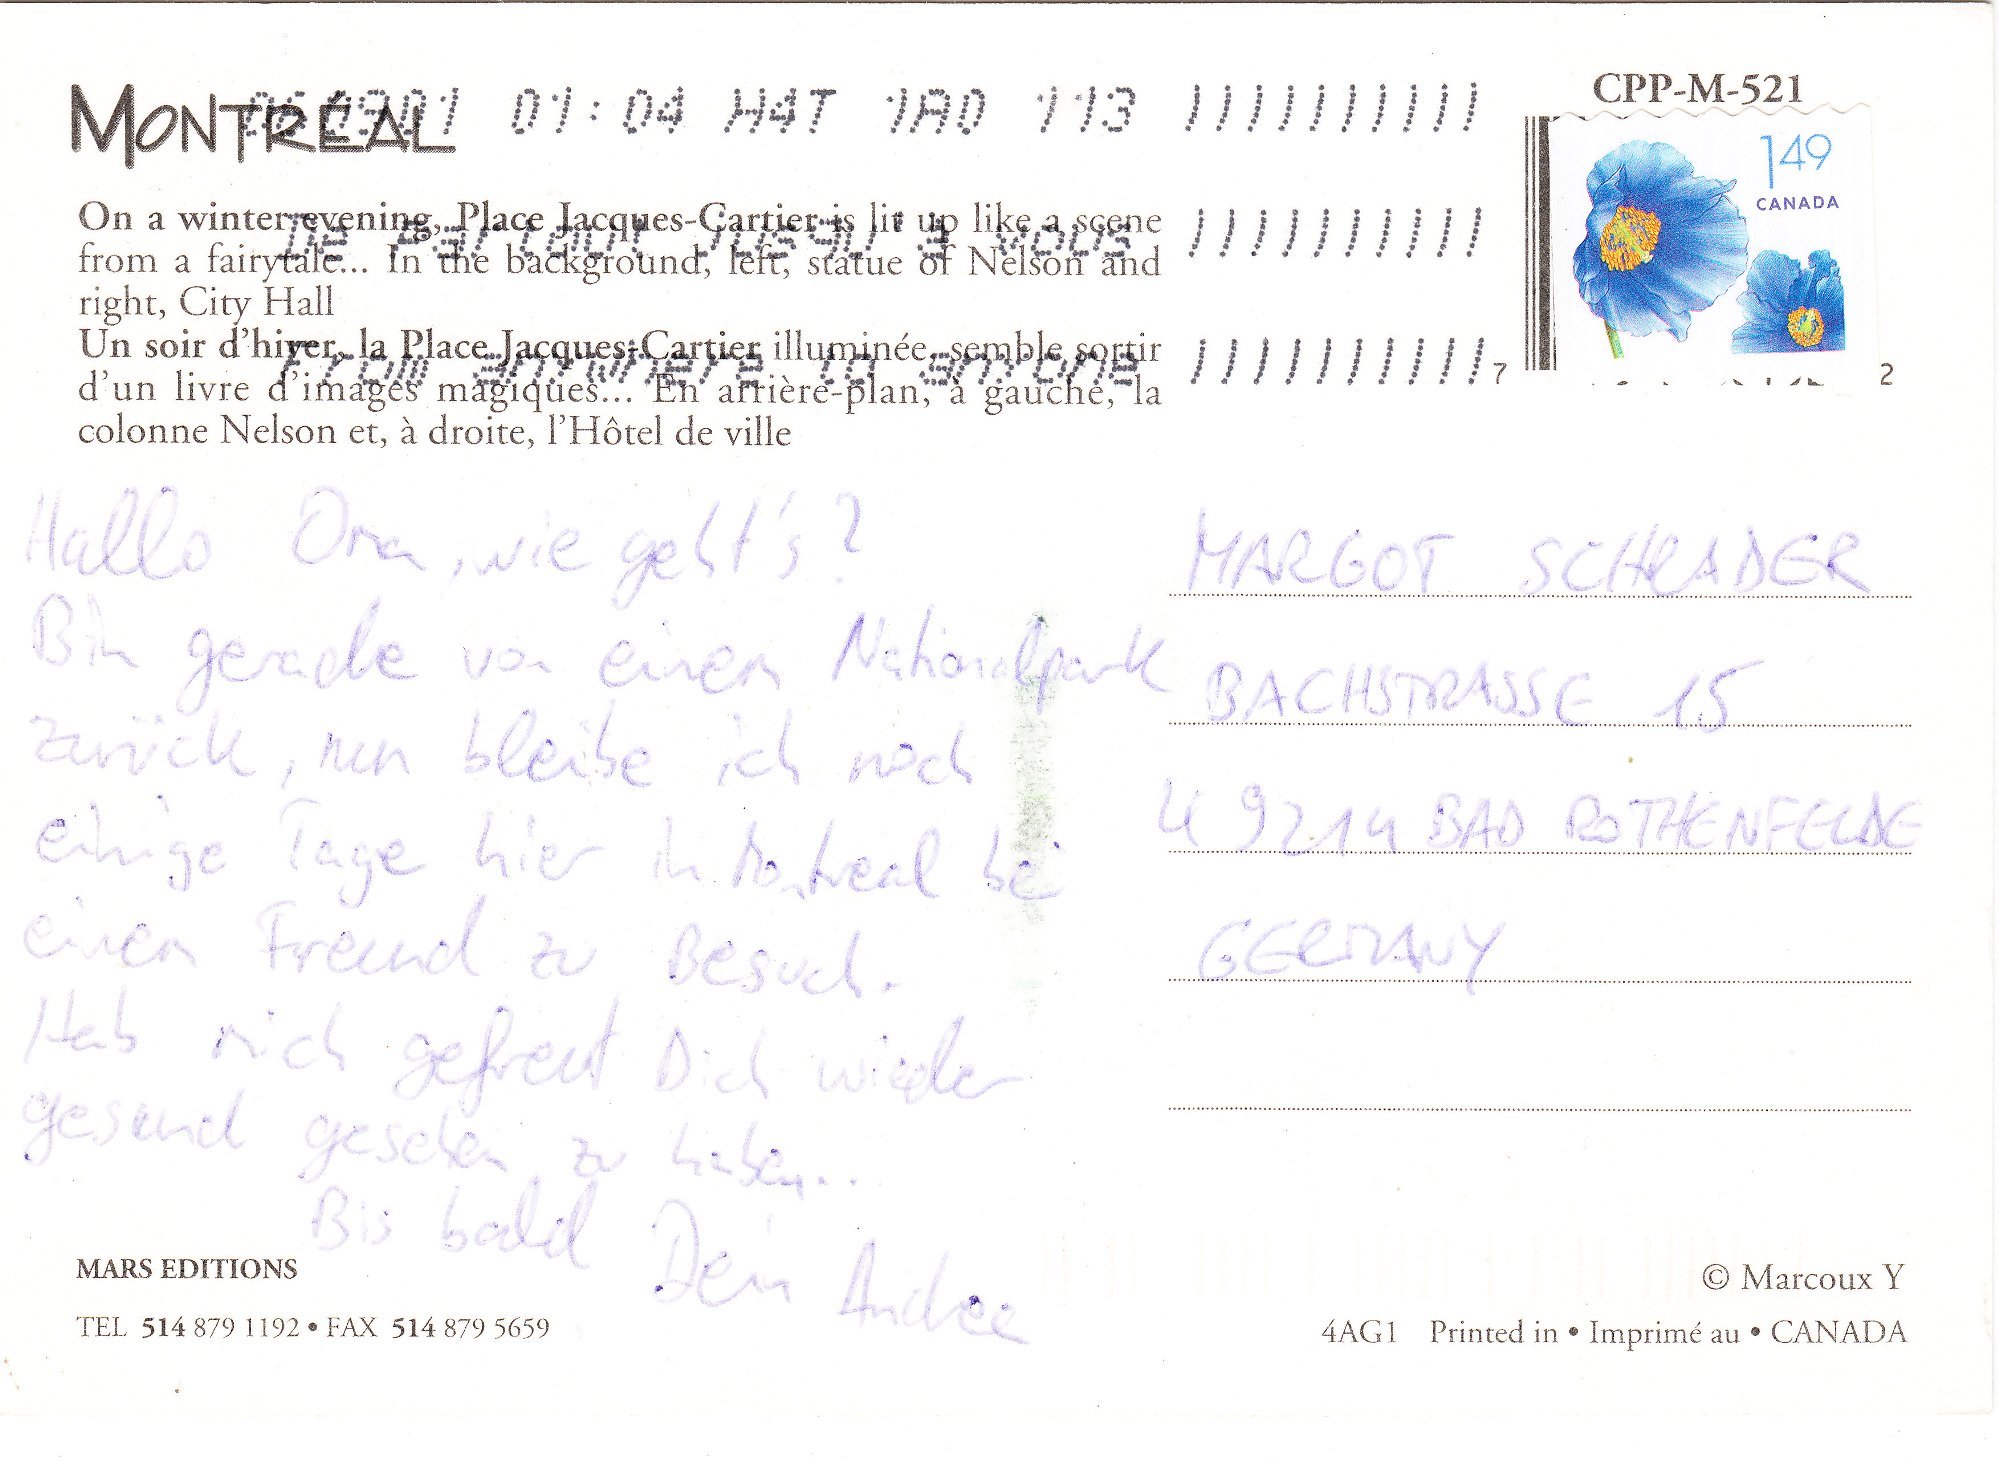 MONTRÉAL
060301 01:04 H4T 1A0 113
CPP-M-521
1.49
CANADA
On a winter evening, Place Jacques-Cartier is lit up like a scene
De partout jusqu'à vous
from a fairytale... In the background, left, statue of Nelson and
right, City Hall
Un soir d'hiver, la Place Jacques-Cartier illuminée, semble sortir
From anywhere to anyone
7
2
d'un livre d'images magiques... En arrière-plan, à gauche, la
colonne Nelson et, à droite, l'Hôtel de ville
Hallo Oma, wie geht's?
Bin gerade von einem Nationalpark
zurück, nun bleibe ich noch
einige Tage hier in Montreal bei
einen Freund zu Besuch.
Hab mich gefreut Dich wieder
gesund gesehen zu haben...
Bis bald Dein Andree
MARGOT SCHRADER
BACHSTRASSE 15
49214 BAD ROTHENFELDE
GERMANY
MARS EDITIONS
TEL 514 879 1192 • FAX 514 879 5659
© Marcoux Y
4AG1 Printed in • Imprimé au • CANADA